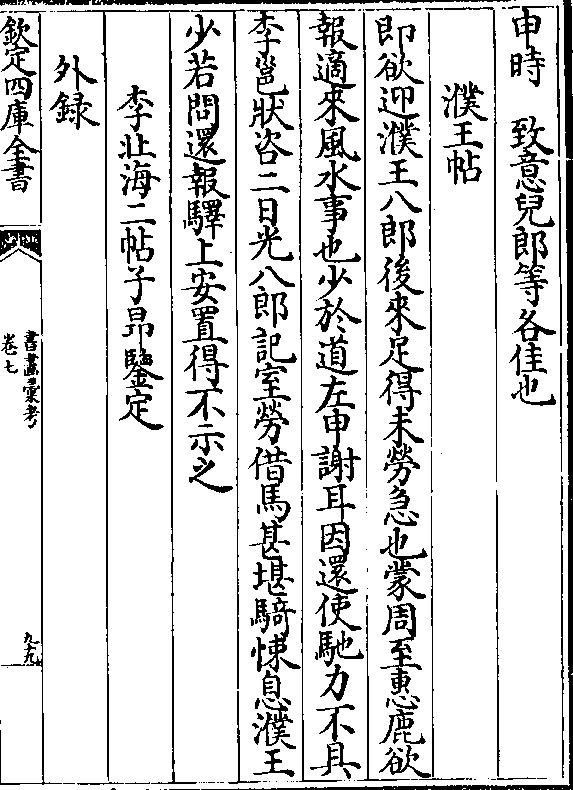 申時　致意兒郎等各佳也
濮王帖
即欲迎濮王八郎後來足得未勞急也蒙周至惠鹿欲
報適來風水事也少於道左申謝耳因還使馳力不具
李邕狀咨二日光八郎記室勞借馬甚堪騎悚息濮王
少若問還報驛上安置得不示之
李北海二帖子昂鑒定
外録
欽定四庫全書
書畫彚考
卷七
九十九